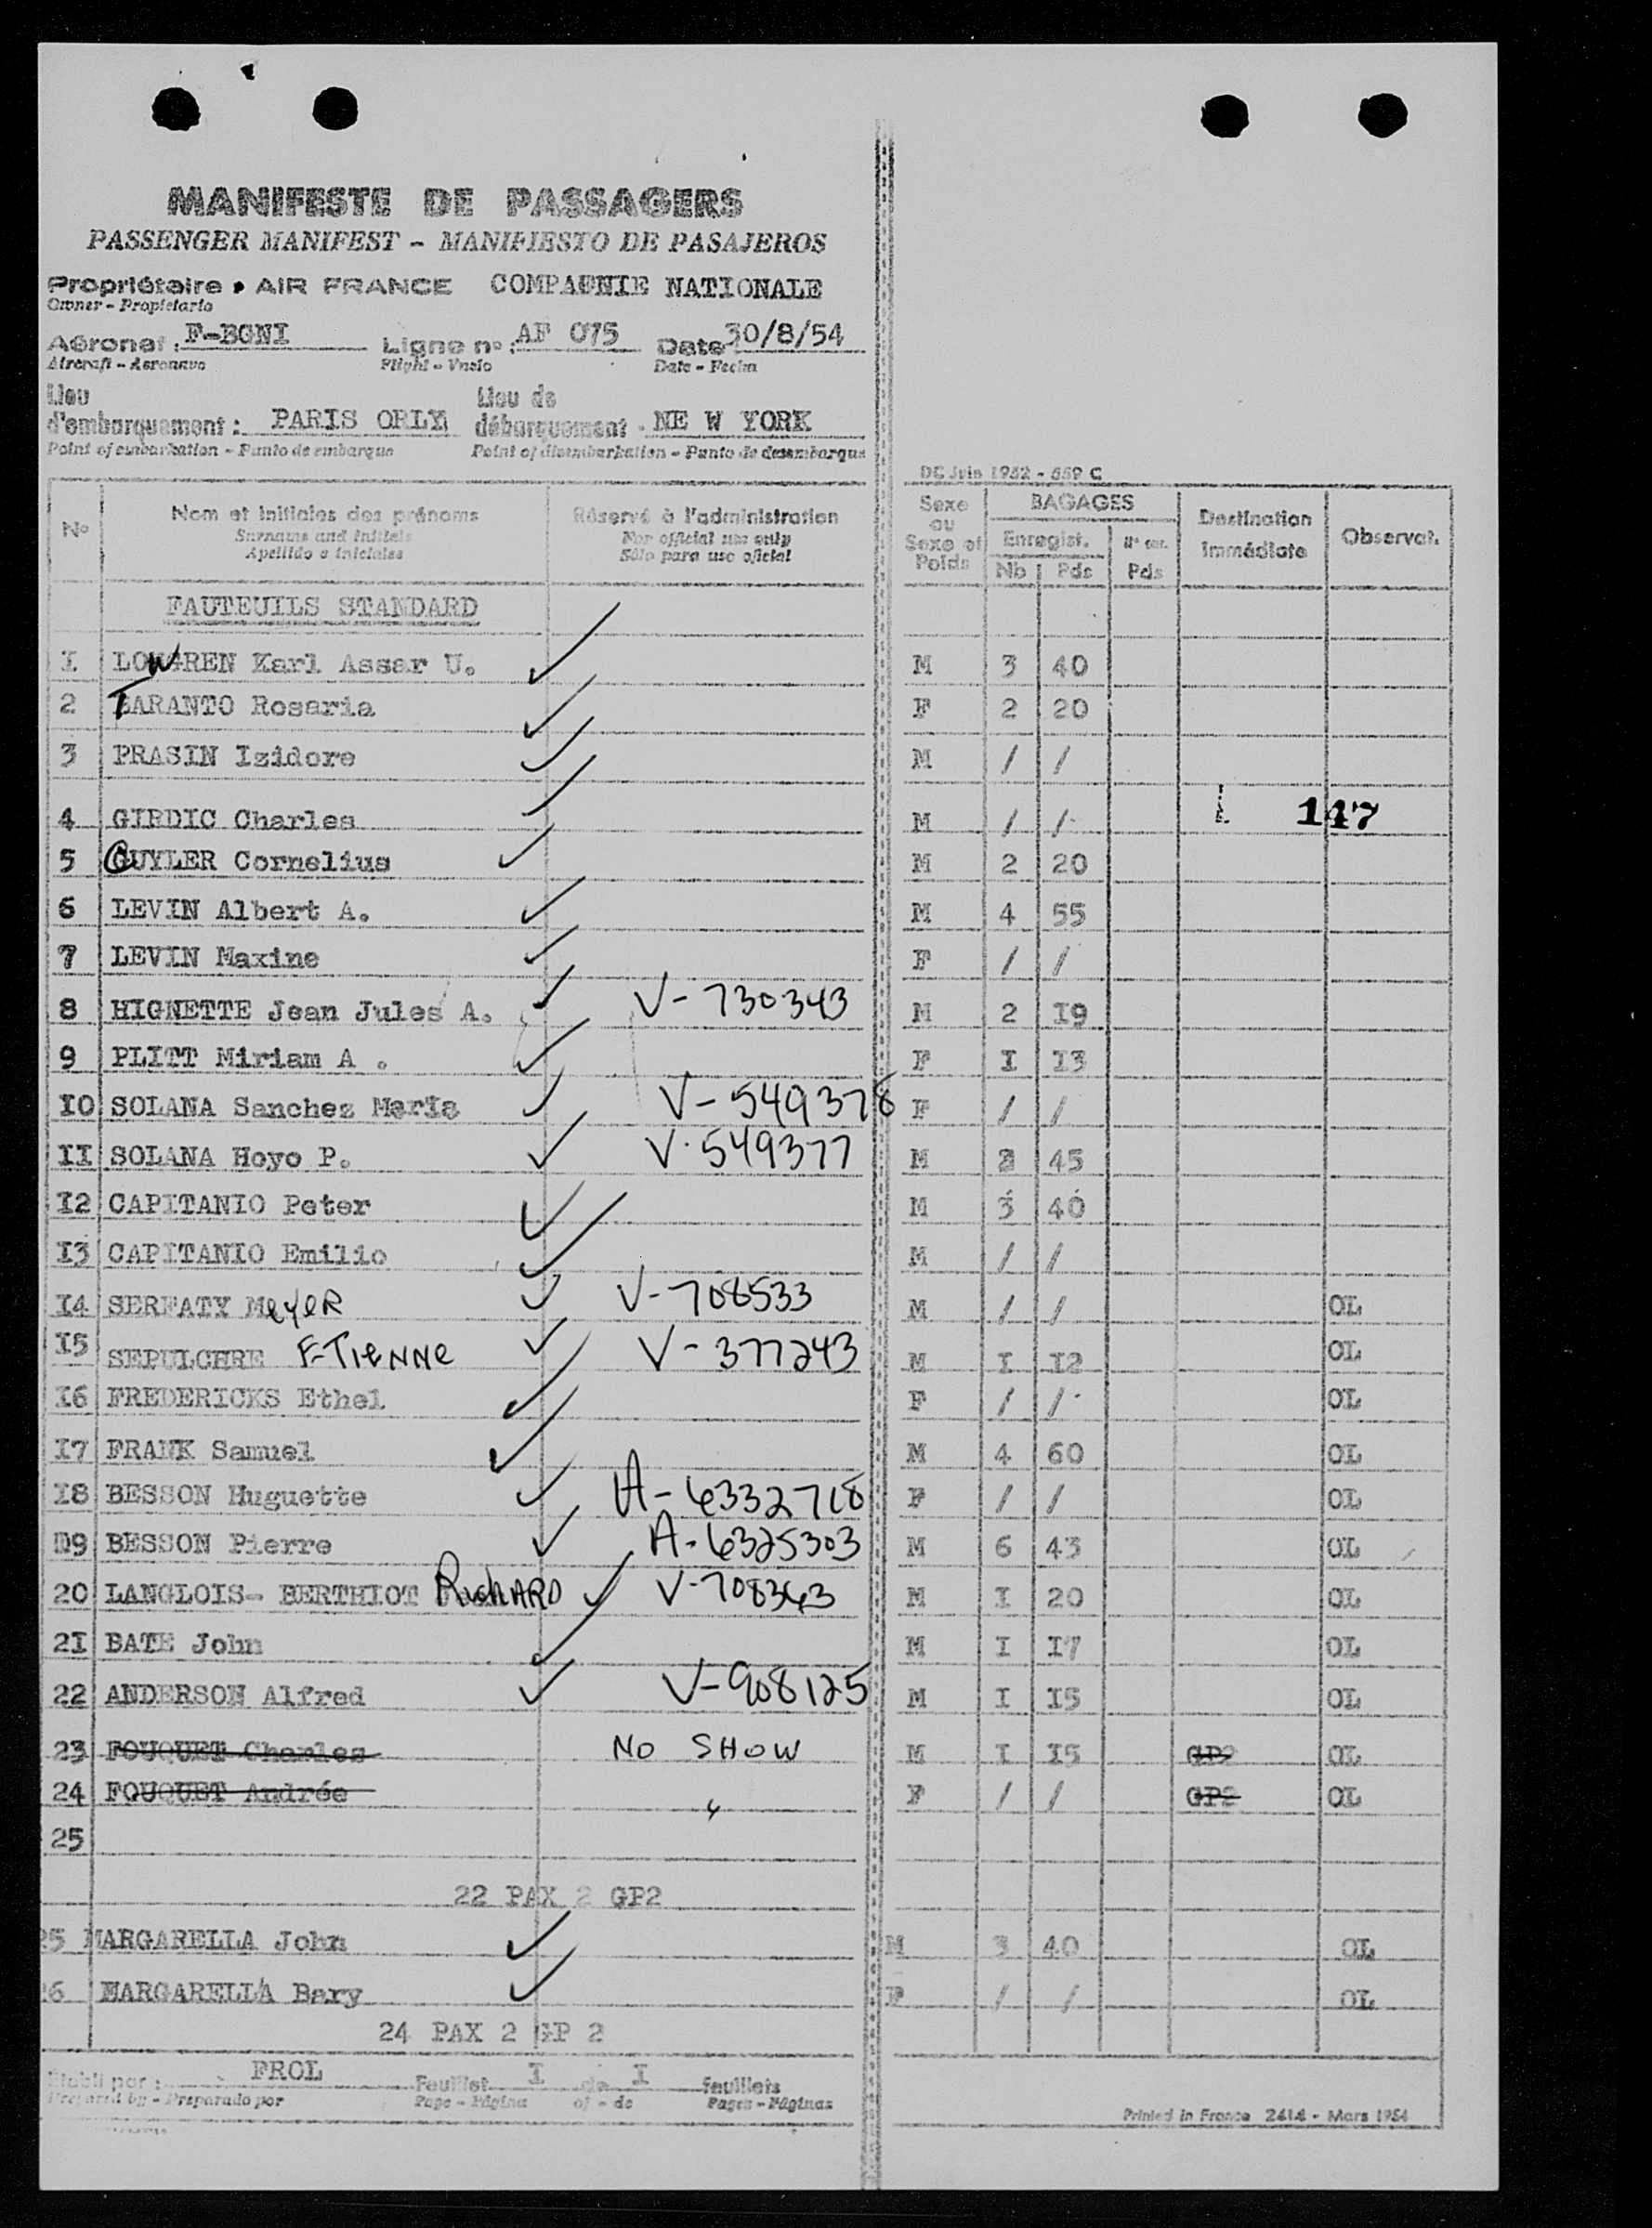 MANIFESTE DE PASSAGERS
PASSENGER MANIFEST - MANIFIESTO DE PASAJEROS
Propriétaire • AIR FRANCE COMPAGNIE NATIONALE
Owner - Propietario
Aéronef : F-BGNI Ligne n° : AF 075 Date 30/8/54
Aircraft - Aeronave Flight - Vuelo Date - Fecha
Lieu d'embarquement : PARIS ORLY Lieu de débarquement : NE W YORK
Point of embarkation - Punto de embarque Point of disembarkation - Punto de desembarque
DC Juin 1952 - 559 C
N° Nom et initiales des prénoms Réservé à l'administration Sexe ou Sexe et Poids BAGAGES Destination immédiate Observat.
Surname and initials For official use only Enregist.
Apellido e iniciales Sólo para uso oficial Nb Pds Pds
FAUTEUILS STANDARD
I LOWGREN Karl Assar U. M 3 40
2 TARANTO Rosaria F 2 20
3 PRASIN Izidore M / /
4 GIRDIC Charles M / / 147
5 CUYLER Cornelius M 2 20
6 LEVIN Albert A. M 4 55
7 LEVIN Maxine F / /
8 HIGNETTE Jean Jules A. V-730343 M 2 I9
9 PLITT Miriam A . F I I3
I0 SOLANA Sanchez Maria V-549378 F / /
II SOLANA Hoyo P. V-549377 M 45
I2 CAPITANIO Peter M 3 40
I3 CAPITANIO Emilio M / /
I4 SERFATY MeyeR V-708533 M / / OL
I5 SEPULCHRE ETIeNNe V-377243 M I I2 OL
I6 FREDERICKS Ethel F / / OL
I7 FRANK Samuel M 4 60 OL
I8 BESSON Huguette A-6332718 F / / OL
D9 BESSON Pierre A-6325303 M 6 43 OL
20 LANGLOIS- BERTHIOT RichARD V-708343 M I 20 OL
2I BATE John M I I7 OL
22 ANDERSON Alfred V-908125 M I I5 OL
23 FOUQUET Charles NO SHOW M I I5 GP2 OL
24 FOUQUET Andrée " F / / GP2 OL
25
22 PAX 2 GP2
25 MARGARELLA John M 3 40 OL
26 MARGARELLA Bary F / / OL
24 PAX 2 GP 2
Etabli par : FROL Feuillet I de I feuillets
Prepared by - Preparado por Page - Página of - de Pages - Páginas
Printed in France 2414 - Mars 1954